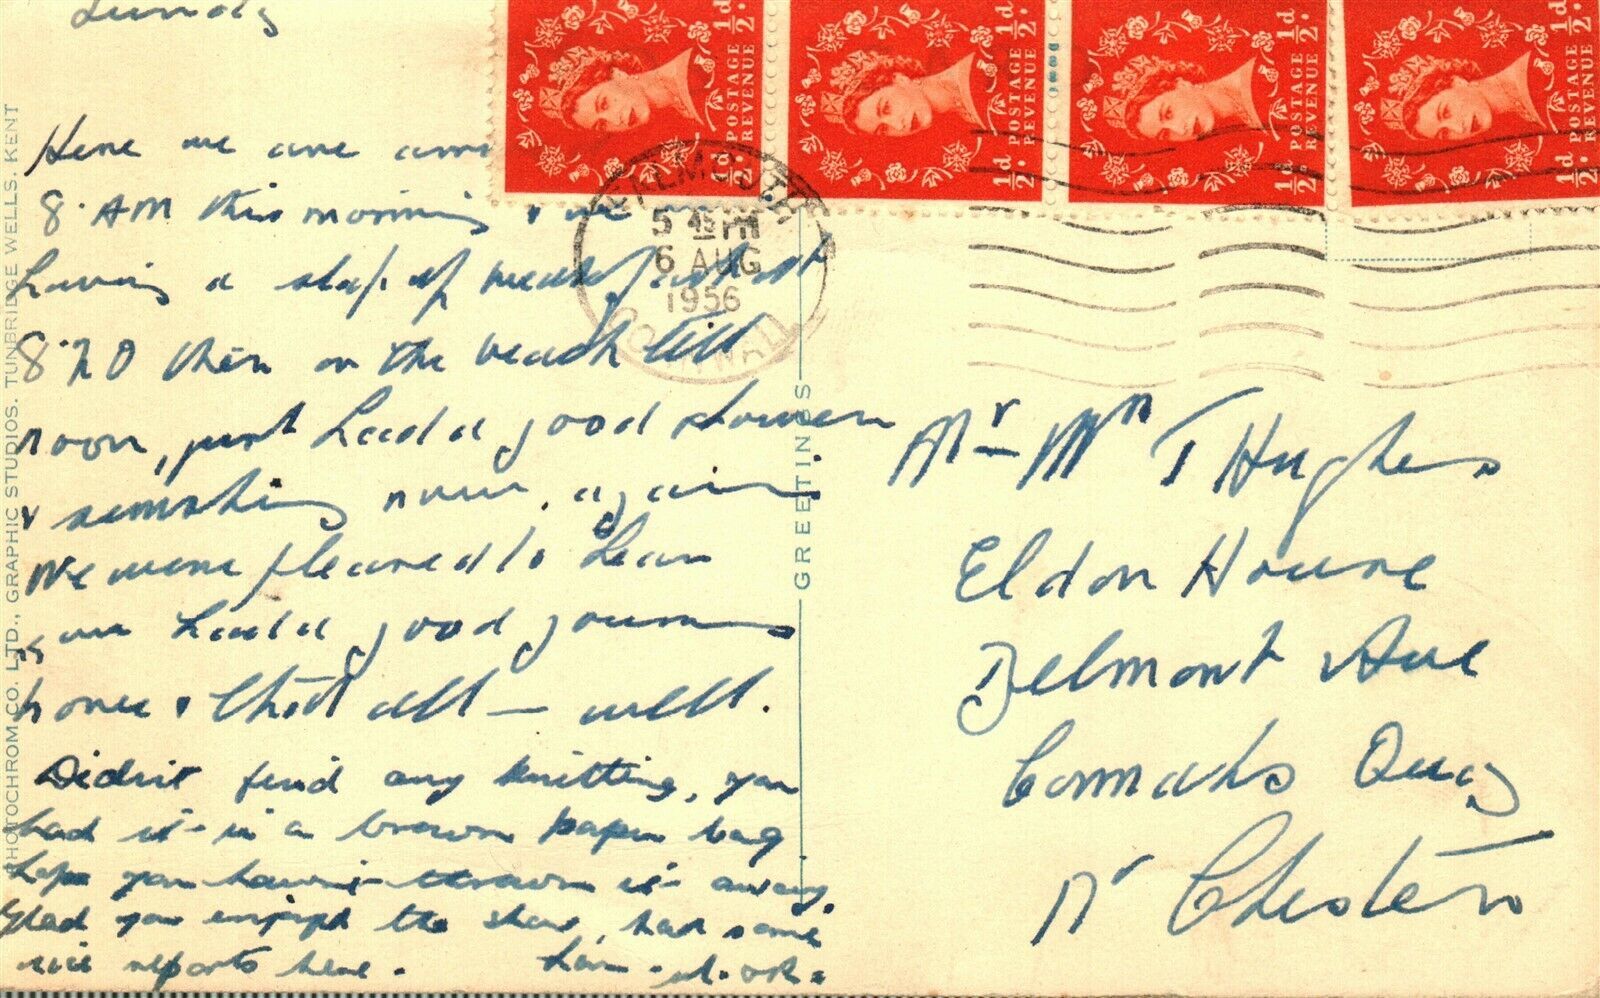 Sunday
Here we are
8.AM this morning & we
having a slap up breakfast at
8.20 then on the beach till
noon, just had a good shower
& something now again
We were pleased to hear
you had a good journey
home & that all – well.
Didn't find any knitting, you
had it in a brown paper bag
hope you haven't thrown it away.
Glad you enjoyed the show, had some
nice reports here.
PHOTOCHROM CO. LTD., GRAPHIC STUDIOS. TUNBRIDGE WELLS. KENT
GREETINGS
½d ½d. POSTAGE REVENUE
½d ½d. POSTAGE REVENUE
½d ½d. POSTAGE REVENUE
½d ½d. POSTAGE REVENUE
FALMOUTH
5 45 PM
6 AUG
1956
CORNWALL
Mr Mrs T Hughes
Eldon House
Belmont Ave
Connahs Quay
Nr Chester